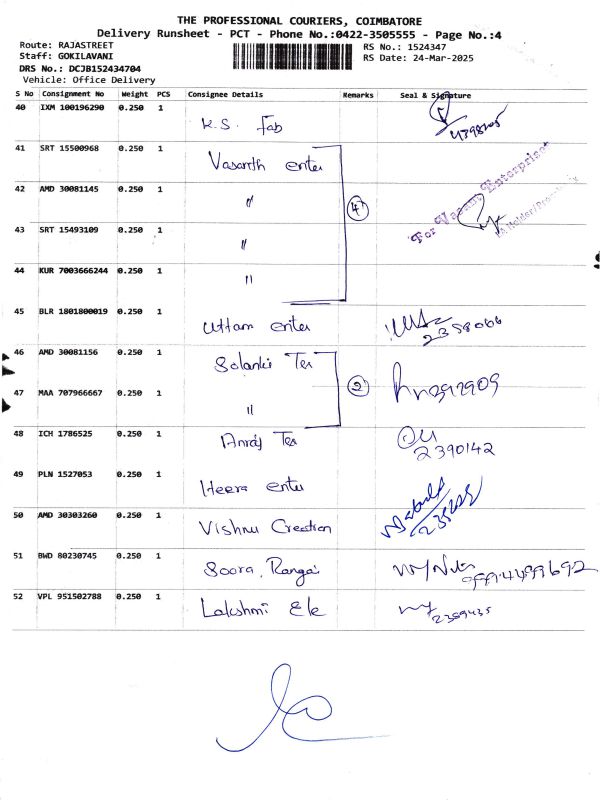 THE PROFESSIONAL COURIERS, COIMBATORE
Delivery Runsheet - PCT - Phone No.:0422-3505555 - Page No.:4
Route: RAJASTREET
Staff: GOKILAVANI
DRS No.: DCJB152434704
Vehicle: Office Delivery
RS No.: 1524347
RS Date: 24-Mar-2025
S No Consignment No Weight PCS Consignee Details Remarks Seal & Signature
40 IXM 100196290 0.250 1 K.S. Fab
41 SRT 15500968 0.250 1 Vasanth enter
42 AMD 30081145 0.250 1 〃 4
For Vasant Enterprises
43 SRT 15493109 0.250 1 〃
44 KUR 7003666244 0.250 1 〃
45 BLR 1801800019 0.250 1 Uttam enter 2358066
46 AMD 30081156 0.250 1 Solanki Tex
47 MAA 707966667 0.250 1 〃 2
48 ICH 1786525 0.250 1 Anraj Tex 2390142
49 PLN 1527053 0.250 1 Heera enter
50 AMD 30303260 0.250 1 Vishnu Creation
51 BWD 80230745 0.250 1 Soora. Rangai
52 VPL 951502788 0.250 1 Lakshmi Ele 2389435